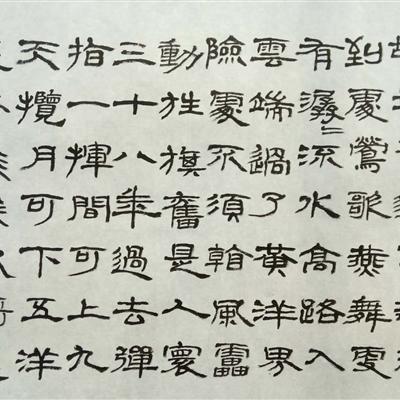 到處鶯歌燕舞更
有潺〻流水高路入
雲端過了黃洋界
險處不須看風雷
動旌旗奮是人寰
三十八年過去彈
指一揮間可上九
天攬月可下五洋